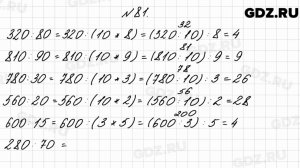 GDZ.RU
№81.
320 : 80 = 320 : (10 * 8) = (320 : 10) : 8 = 4
32
810 : 90 = 810 : (10 * 9) = (810 : 10) : 9 = 9
81
780 : 30 = 780 : (10 * 3) = (780 : 10) : 3 = 26
78
560 : 20 = 560 : (10 * 2) = (560 : 10) : 2 = 28
56
600 : 15 = 600 : (3 * 5) = (600 : 3) : 5 = 4
200
280 : 70 =
GDZ.RU